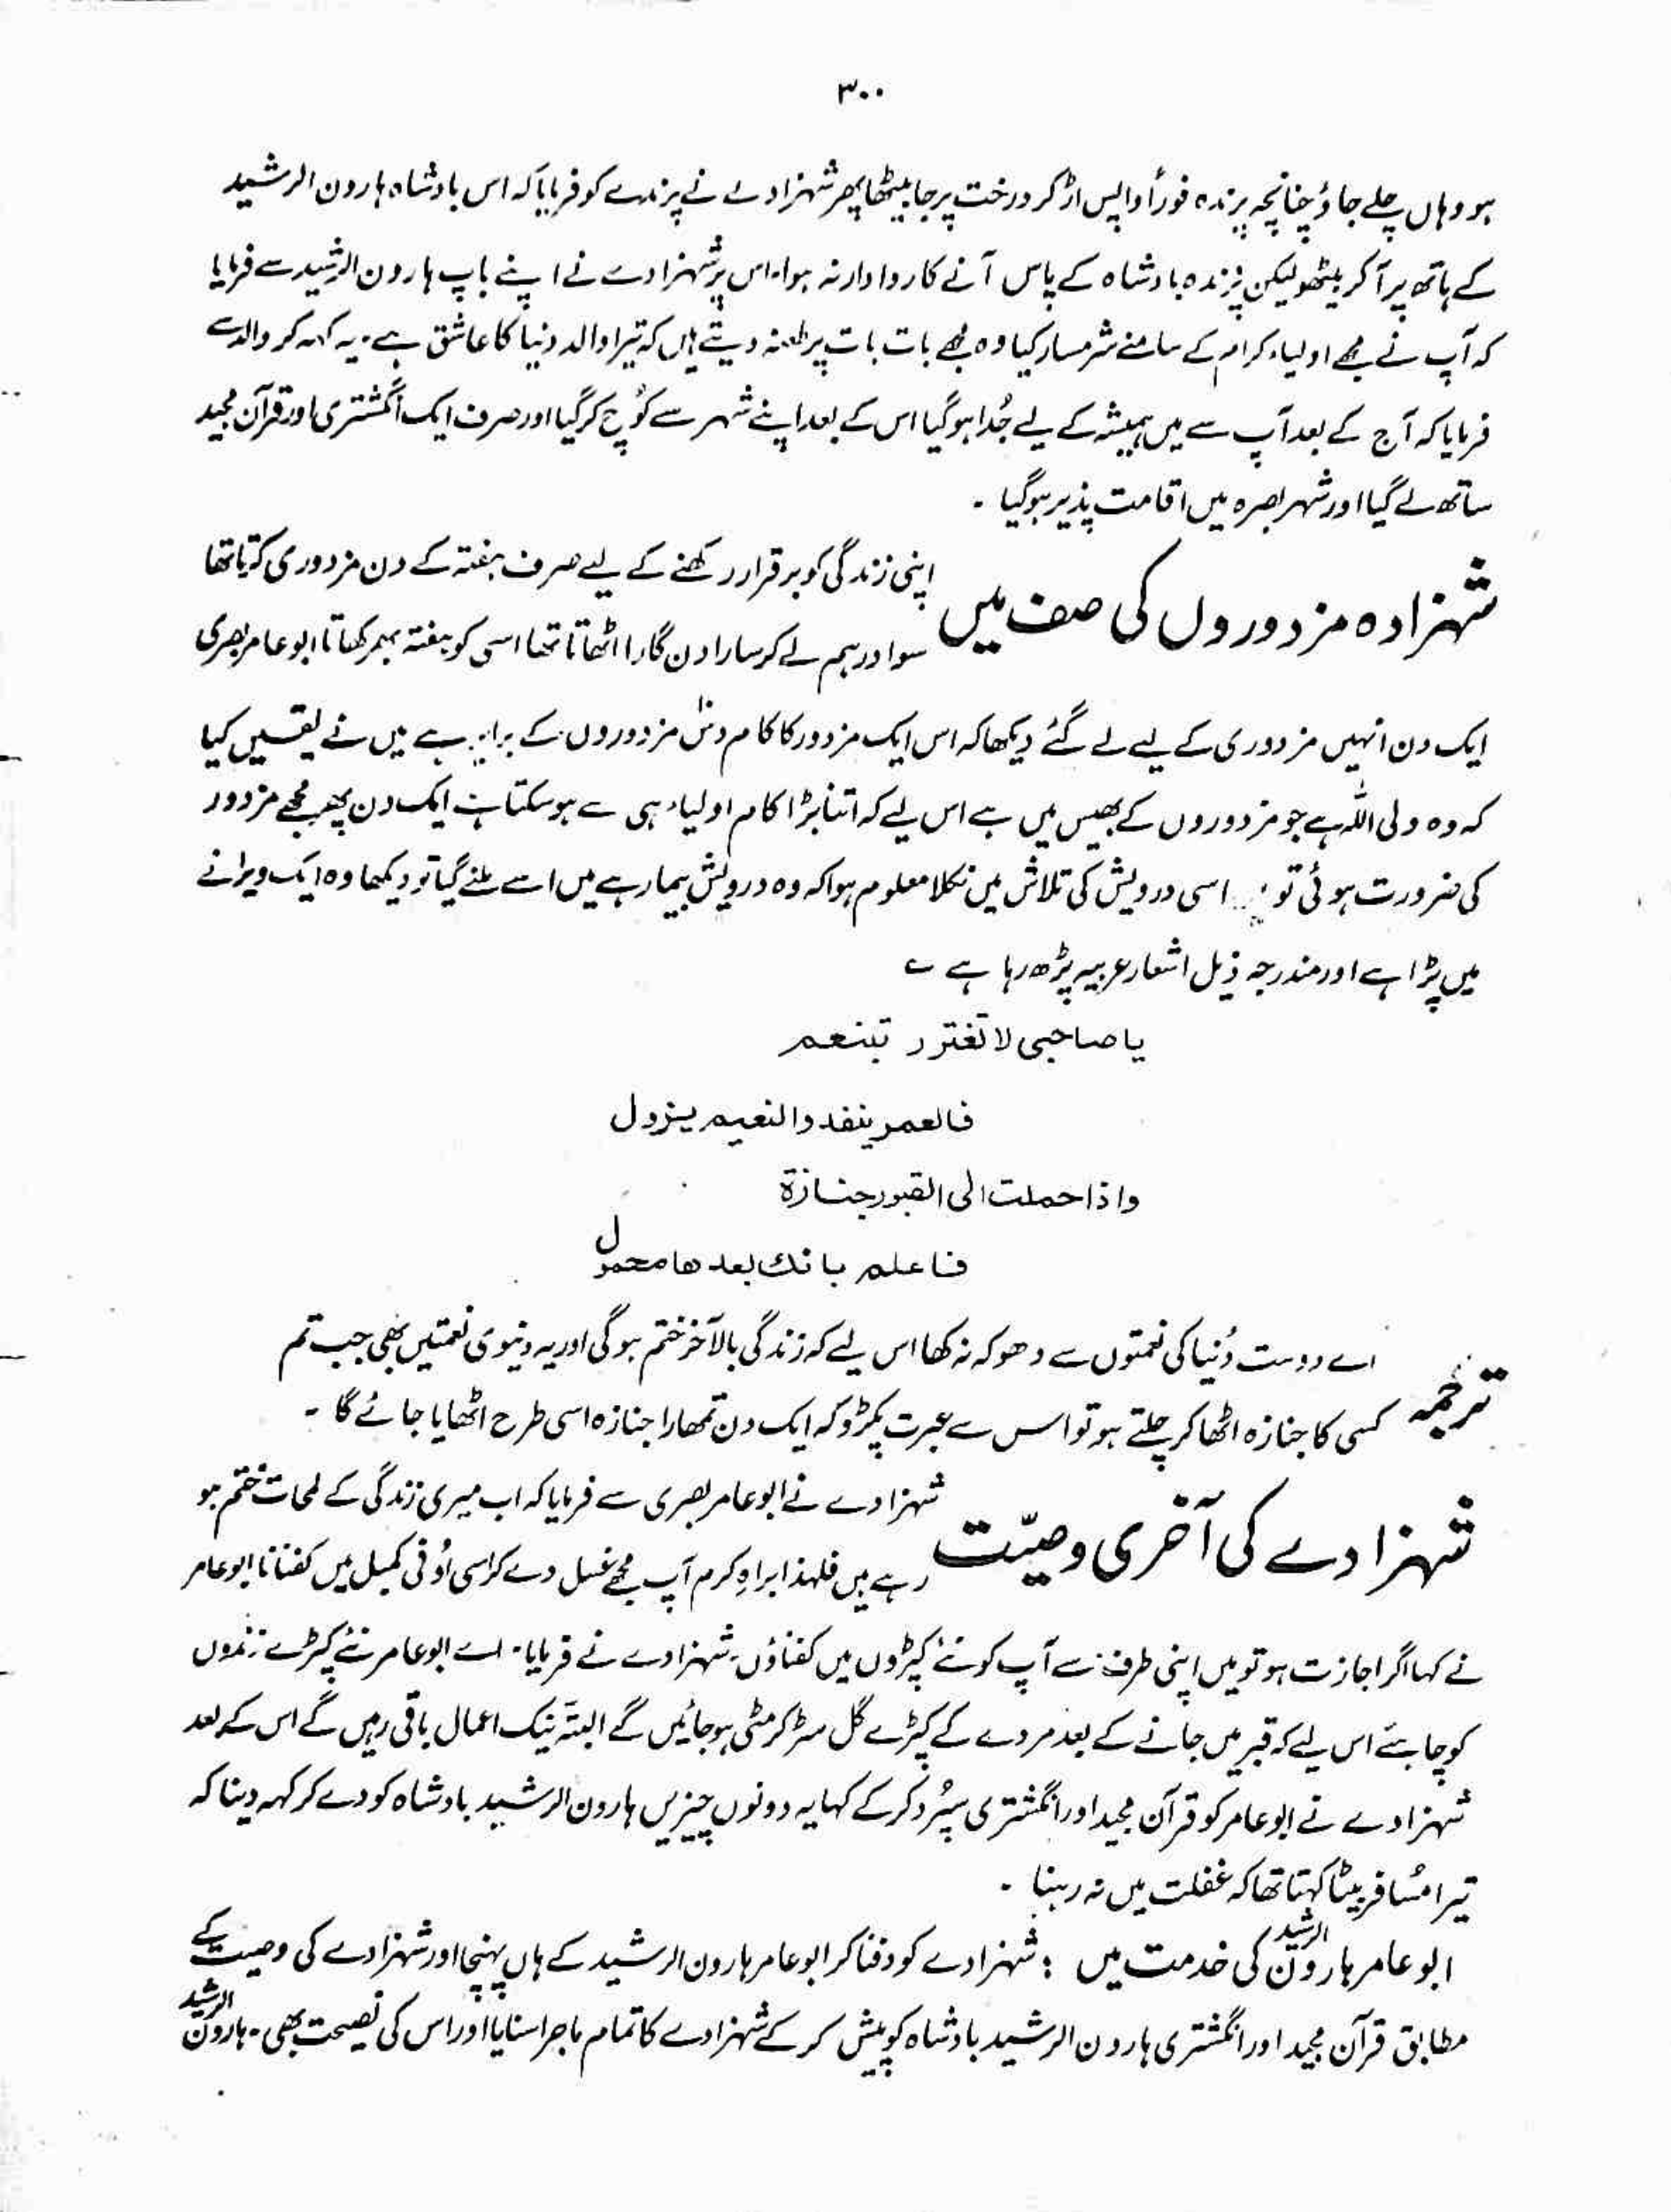 ۳۰۰
ہو وہاں چلے جاؤ چنانچہ پرندہ فوراً واپس اڑ کر درخت پر جا بیٹھا پھر شہزادے نے پرندے کو فرمایا کہ اس بادشاہ ہارون الرشید
کے ہاتھ پر آکر بیٹھو لیکن پرندہ بادشاہ کے پاس آنے کا روادار نہ ہوا۔ اس پر شہزادے نے اپنے باپ ہارون الرشید سے فرمایا
کہ آپ نے مجھے اولیاء کرام کے سامنے شرمسار کیا وہ مجھے بات بات پر طعنہ دیتے ہیں کہ تیرا والد دنیا کا عاشق ہے۔ یہ کہہ کر والد سے
فرمایا کہ آج کے بعد آپ سے میں ہمیشہ کے لیے جُدا ہو گیا اس کے بعد اپنے شہر سے کُوچ کر گیا اور صرف ایک انگشتری اور قرآن مجید
ساتھ لے گیا اور شہر بصرہ میں اقامت پذیر ہو گیا ۔
شہزادہ مزدوروں کی صف میں اپنی زندگی کو برقرار رکھنے کے لیے صرف ہفتہ کے دن مزدوری کرتا تھا
سوا درہم لے کر سارا دن گارا اٹھاتا تھا اسی کو ہفتہ بھر کھاتا ابو عامر بصری
ایک دن انہیں مزدوری کے لیے لے گئے دیکھا کہ اس ایک مزدور کا کام دس مزدوروں کے برابر ہے میں نے یقین کیا
کہ وہ ولی اللہ ہے جو مزدوروں کے بھیس میں ہے اس لیے کہ اتنا بڑا کام اولیاء ہی سے ہو سکتا ہے ایک دن پھر مجھے مزدور
کی ضرورت ہوئی تو اسی درویش کی تلاش میں نکلا معلوم ہوا کہ وہ درویش بیمار ہے میں اسے ملنے گیا تو دیکھا وہ ایک ویرانے
میں پڑا ہے اور مندرجہ ذیل اشعار عربیہ پڑھ رہا ہے ؎
یا صاحبی لا تغترر بتنعم
فالعمر ینفد والنعیم یزول
واذا حملت الی القبور جنازة
فاعلم بانك بعدها محمول
ترجمہ اے دوست دُنیا کی نعمتوں سے دھوکہ نہ کھا اس لیے کہ زندگی بالآخر ختم ہوگی اور یہ دنیوی نعمتیں بھی جب تم
کسی کا جنازہ اٹھا کر چلتے ہو تو اس سے عبرت پکڑو کہ ایک دن تمھارا جنازہ اسی طرح اٹھایا جائے گا ۔
شہزادے کی آخری وصیّت شہزادے نے ابو عامر بصری سے فرمایا کہ اب میری زندگی کے لمحات ختم ہو
رہے ہیں فلہذا براہِ کرم آپ مجھے غسل دے کر اسی اُونی کمبل میں کفنانا ابو عامر
نے کہا اگر اجازت ہو تو میں اپنی طرف سے آپ کو نئے کپڑوں میں کفناؤں۔ شہزادے نے فرمایا۔ اے ابو عامر نئے کپڑے زندوں
کو چاہئے اس لیے کہ قبر میں جانے کے بعد مردے کے کپڑے گل سڑ کر مٹی ہو جائیں گے البتہ نیک اعمال باقی رہیں گے اس کے بعد
شہزادے نے ابو عامر کو قرآن مجید اور انگشتری سپُرد کر کے کہا یہ دونوں چیزیں ہارون الرشید بادشاہ کو دے کر کہہ دینا کہ
تیرا مسُافر بیٹا کہتا تھا کہ غفلت میں نہ رہنا ۔
ابو عامر ہارون الرشید کی خدمت میں : شہزادے کو دفنا کر ابو عامر ہارون الرشید کے ہاں پہنچا اور شہزادے کی وصیت کے
مطابق قرآن مجید اور انگشتری ہارون الرشید بادشاہ کو پیش کر کے شہزادے کا تمام ماجرا سنایا اور اس کی نصیحت بھی۔ ہارون الرشید